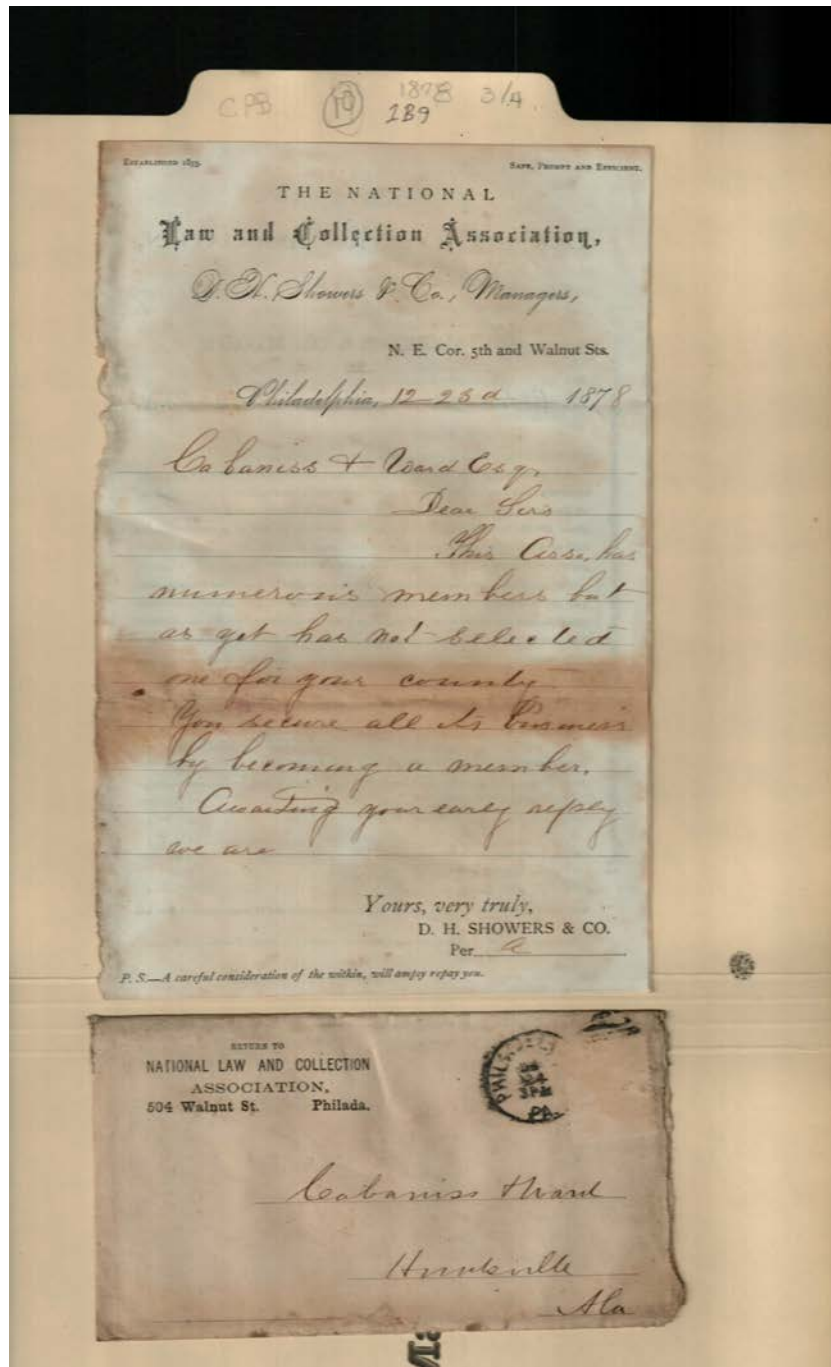 CPB 10 1878 3/4
2B9
ESTABLISHED 1855.
SAFE, PROMPT AND EFFICIENT.
THE NATIONAL
Law and Collection Association,
D. H. Showers & Co., Managers,
N. E. Cor. 5th and Walnut Sts.
Philadelphia, 12-23d 1878
Cabaniss & Ward Esq.
Dear Sirs
This Asso. has
numerous members but
as yet has not selected
one for your county
You secure all its business
by becoming a member.
Awaiting your early reply
we are
Yours, very truly,
D. H. SHOWERS & CO.
Per
P. S.—A careful consideration of the within, will ampy repay you.
RETURN TO
NATIONAL LAW AND COLLECTION
ASSOCIATION,
504 Walnut St. Philada.
PA.
Cabaniss & Ward
Huntsville
Ala